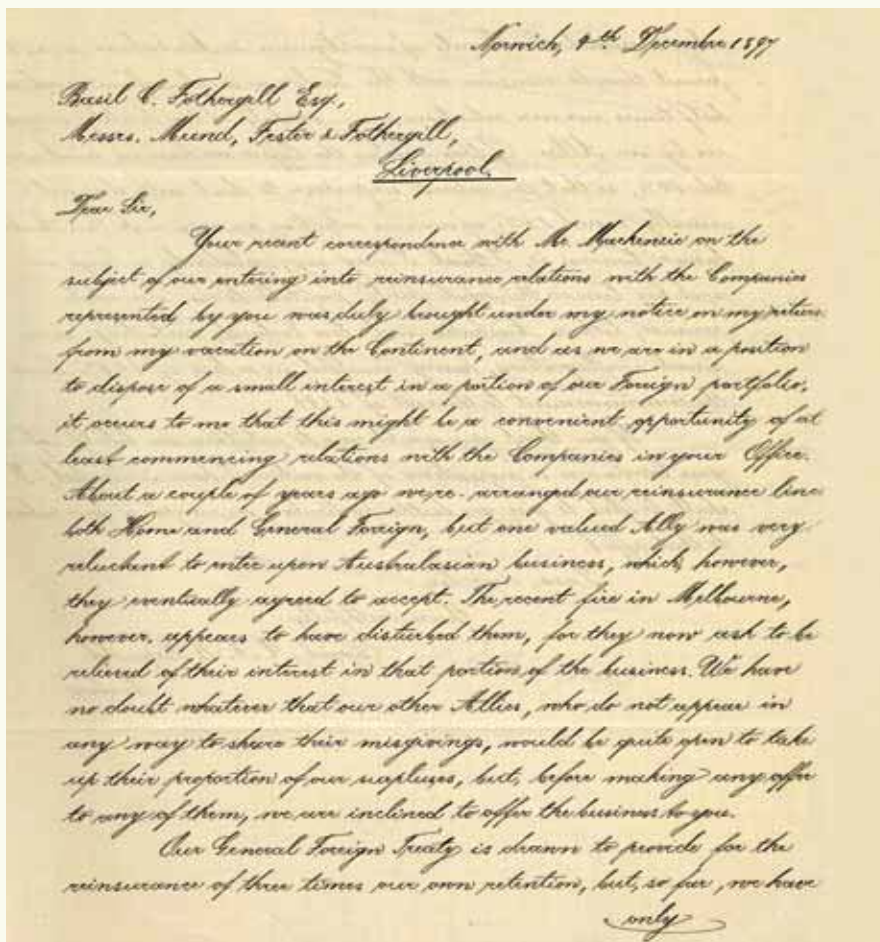 Norwich, 9th Decembre 1897
Basil C. Fothergill Esq.,
Messrs. Mund, Fester & Fothergill,
Liverpool.
Dear Sir,
Your recent correspondence with Mr. Mackenzie on the
subject of our entering into reinsurance relations with the Companies
represented by you was duly brought under my notice on my return
from my vacation on the Continent, and as we are in a position
to dispose of a small interest in a portion of our Foreign portfolio,
it occurs to me that this might be a convenient opportunity of at
least commencing relations with the Companies in your Office.
About a couple of years ago we re-arranged our reinsurance line
both Home and General Foreign, but one valued Ally was very
reluctant to enter upon Australasian business, which, however,
they eventually agreed to accept. The recent fire in Melbourne,
however, appears to have disturbed them, for they now ask to be
relieved of their interest in that portion of the business. We have
no doubt whatever that our other Allies, who do not appear in
any way to share their misgivings, would be quite open to take
up their proportion of our surpluses, but, before making any offer
to any of them, we are inclined to offer the business to you.
Our General Foreign Treaty is drawn to provide for the
reinsurance of three times our own retention, but, so far, we have
only